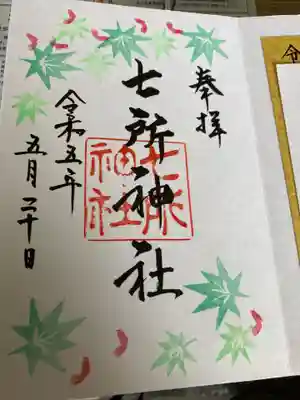 奉拝
七所神社
七所神社
令和五年
五月二十日
令